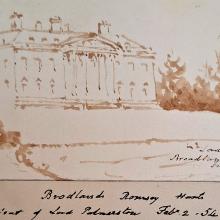 Broadlan
Brodlands Romsey Hants
Seat of Lord Palmerston Feb 2 - 54